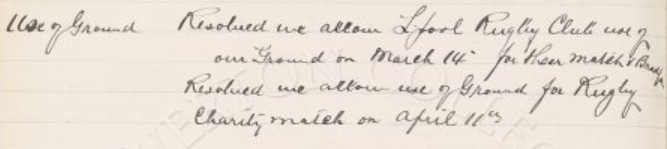 Use of Ground Resolved we allow L'pool Rugby Club use of
our Ground on March 14th for their match v Bradf.
Resolved we allow use of Ground for Rugby
Charity match on April 11th